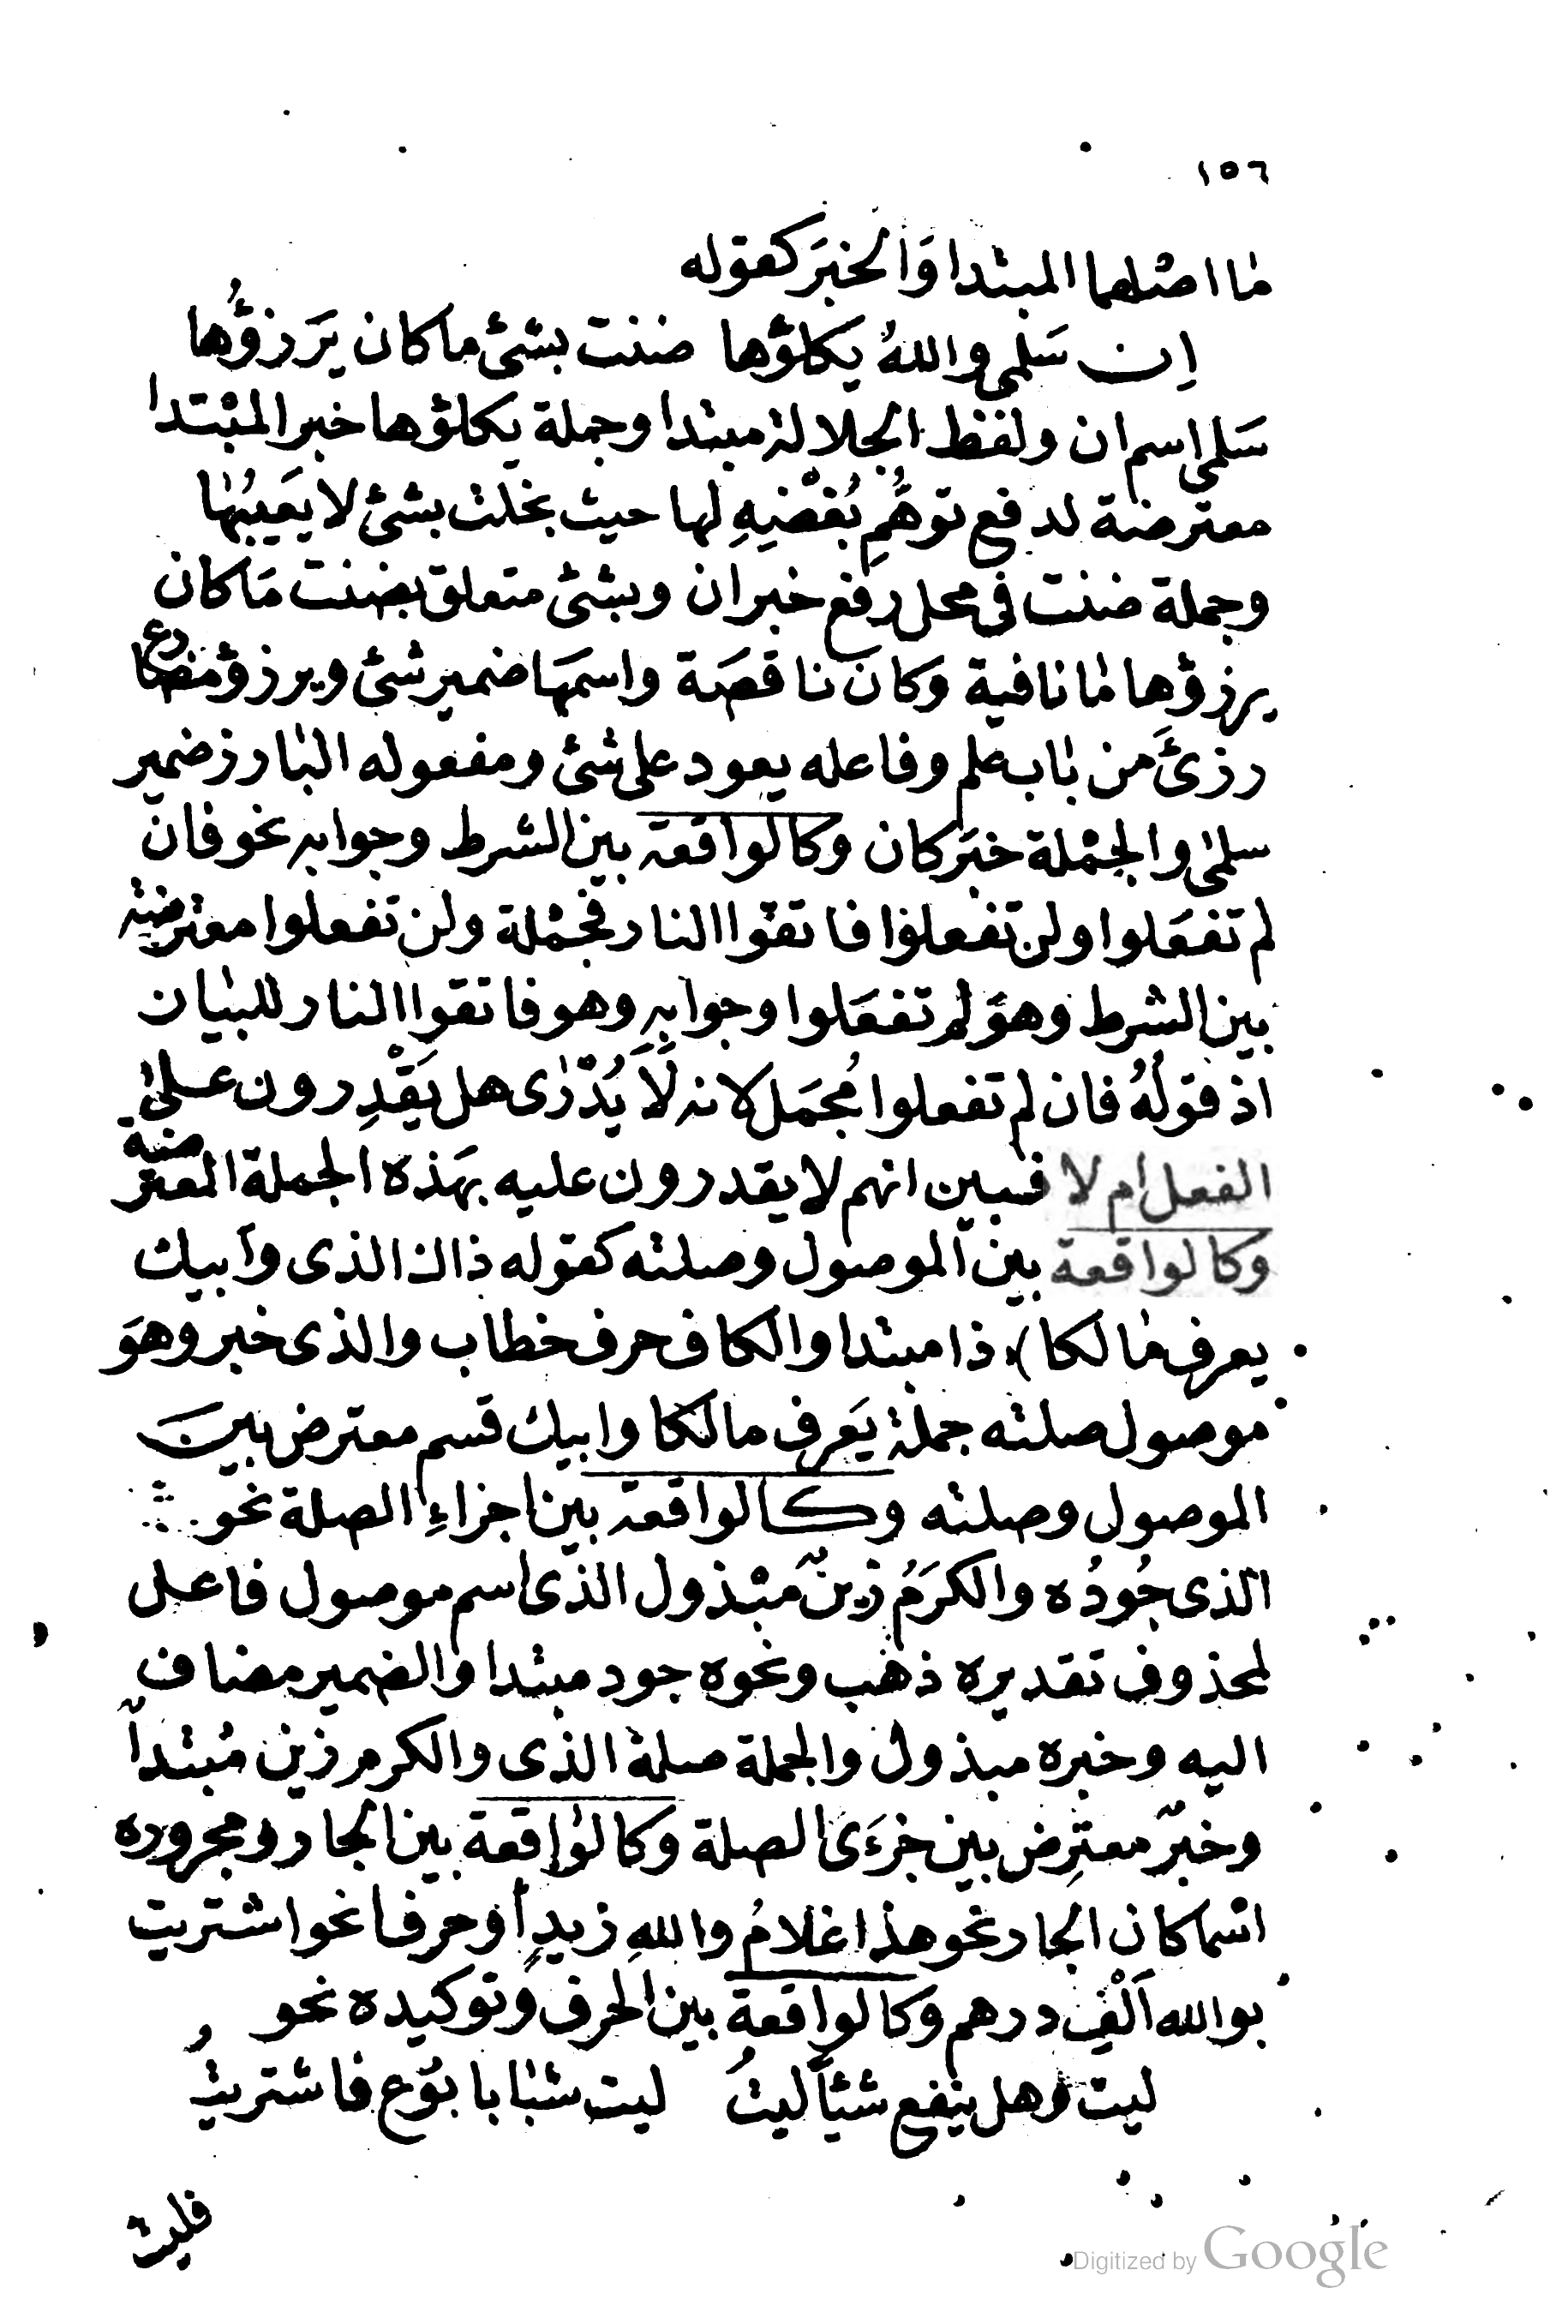 ١٥٦
ما اصلهما المبتدا وَالخبَر كقوله
اِن سَلمى واللهُ يكلؤها ضننت بشئ ما كان يَرزؤُها
سَلمى اسم ان ولفظ الجلالة مبتدا وجملة يكلؤها خبر المبْتدا
معترضة لدفع توهُّمِ بُغضْهِ لها حيث بخلت بشئ لا يَعيبُها
وجملة ضننت فى محل رفع خبر ان وبشئ متعلق بضننت مَا كان
يرزؤها ما نافية وكان ناقصَة واسمَها ضمير شئ ويرزؤ مضارع
رزئَ من باب علم وفاعله يعود على شئ ومفعوله البارز ضمير
سلمى والجمْلة خبَر كان وكالواقعة بين الشرط وجوابه نحو فان
لم تفعَلوا ولن تفعلوا فاتقوا النار فجمْلة ولن تفعلوا معترضة
بين الشرط وهوَ لم تفعَلوا وجوابهِ وهو فاتقوا النار للبيان
اذ قولُهُ فان لم تفعلوا مُجمَل لانه لَا يُدْرٰى هل يَقْدِرون على
الفعل ام لا فبين انهم لا يقدرون عليه بهَذه الجملة المعترضة
وكالواقعة بين الموصول وصلته كقوله ذاك الذى وأبيك
يعرف مالكا) ذا مبتدا والكاف حرف خطاب والذى خبر وهوَ
موصول صلته جملة يَعرف مالكا وابيك قسم معترض بين
الموصول وصلته وكالواقعة بين اجزاءِ الصلة نحو
الذى جُودُه والكرَمُ زينٌ مَبْذول الذى اسم موصول فاعل
لمحذوف تقديره ذهَب ونحوه جود مبتدا والضمير مضاف
اليه وخبره مبذول والجملة صلة الذى والكرم زين مُبتدأٌ
وخبرٌ معترِض بين جزءَى الصلة وكالواقعة بين الجار ومجروره
اسْما كان الجار نحو هذا غلامُ واللهِ زيدٍ أو حرفا نحو اشتريت
بوالله اَلْفِ درهم وكالواقعة بين الحرف وتوكيده نحو
ليت وهل ينفع شيئًا ليتُ ليت شبابا بوُع فاشتريتُ
فليت
Digitized by Google